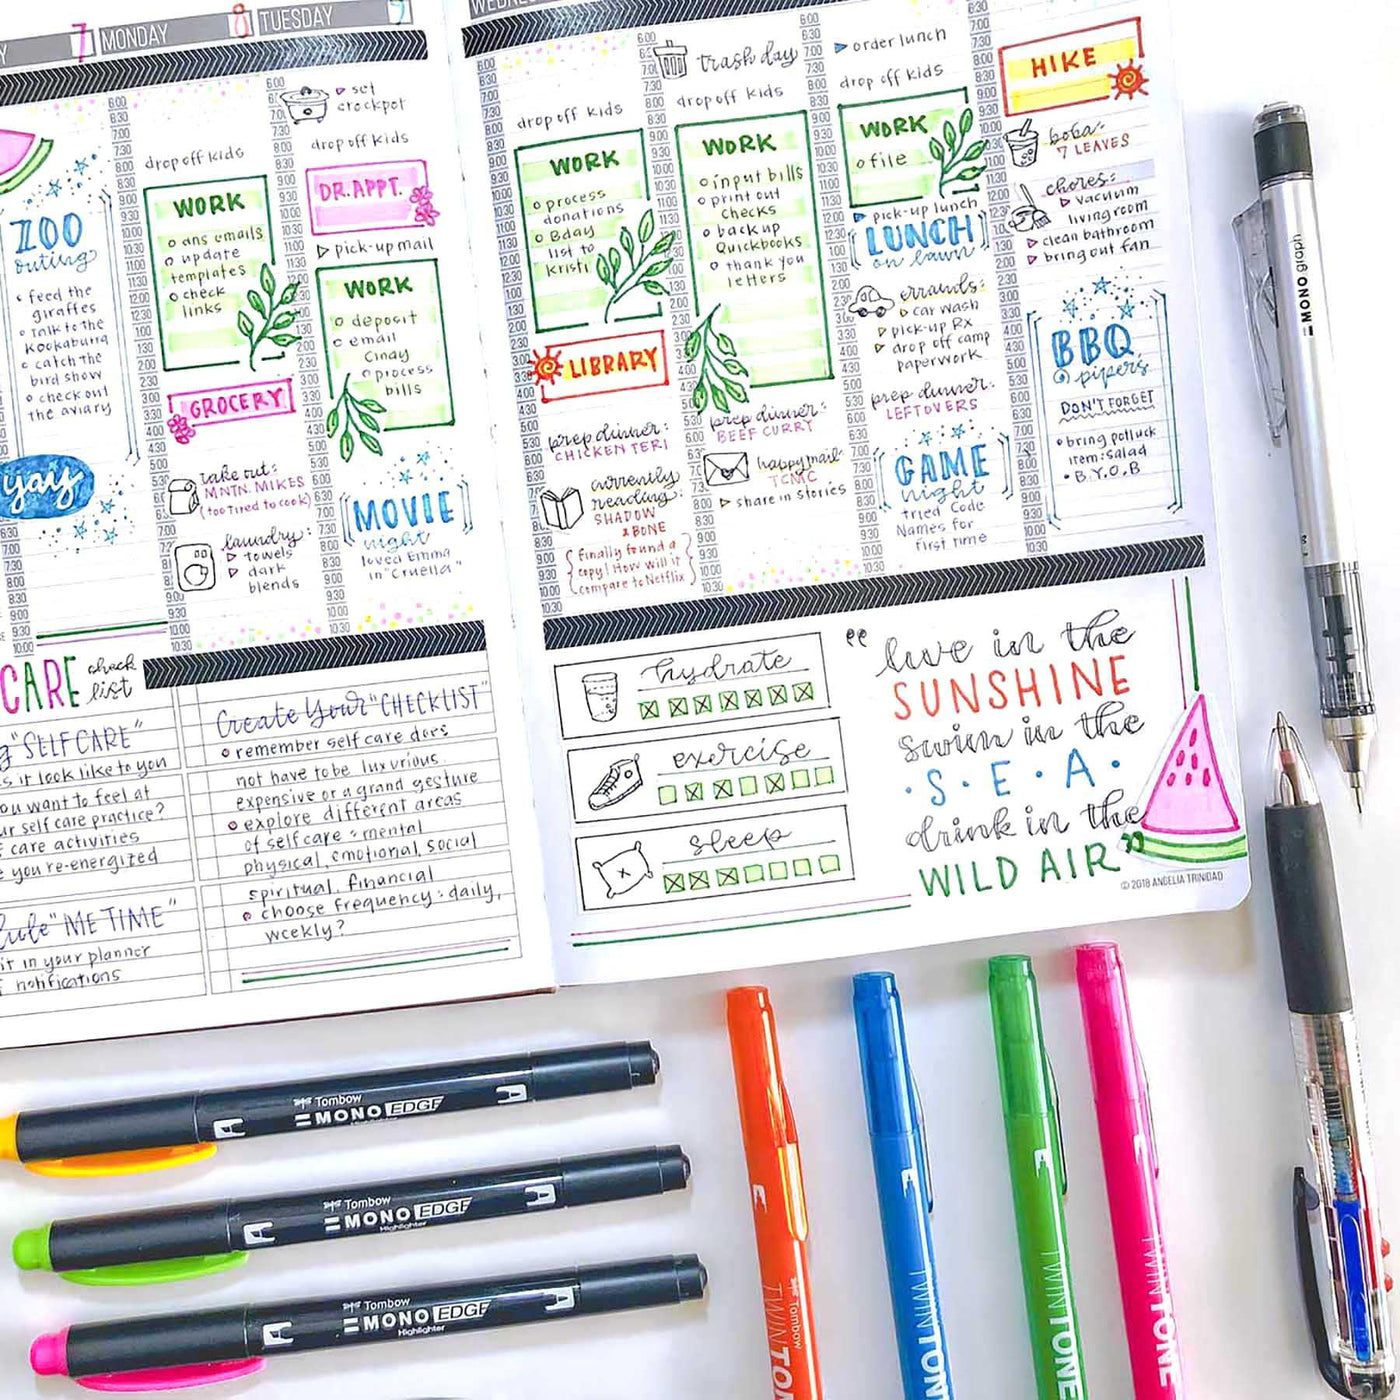 7
MONDAY
8
TUESDAY
9
ZOO
outing
• feed the
giraffes
• talk to the
Kookaburra
• catch the
bird show
• check out
the aviary
yay
drop off kids
WORK
o ans emails
o update
templates
o check
links
GROCERY
take out:
MNTN. MIKES
(too tired to cook)
laundry:
towels
dark
blends
set
crockpot
drop off kids
DR. APPT.
pick-up mail
WORK
o deposit
o email
Cindy
o process
bills
MOVIE
night
loved Emma
in "Cruella"
drop off kids
WORK
o process
donations
o Bday
list to
Kristi
LIBRARY
prep dinner:
CHICKEN TERI
currently
reading:
SHADOW
& BONE
{Finally found a
copy! How will it
compare to Netflix}
trash day
drop off kids
WORK
o input bills
o print out
checks
o back up
Quickbooks
o thank you
letters
prep dinner:
BEEF CURRY
happy mail:
TCMC
share in stories
order lunch
drop off kids
WORK
o file
pick-up lunch
LUNCH
on lawn
errands:
car wash
pick-up Rx
drop off camp
paperwork
prep dinner:
LEFTOVERS
GAME
night
tried Code
Names for
first time
HIKE
boba:
7 LEAVES
chores:
vacuum
living room
clean bathroom
bring out fan
BBQ
@ pipers
DON'T FORGET
• bring potluck
item: salad
• B.Y.O.B
CARE check
list
"SELF CARE"
it look like to you
you want to feel at
self care practice?
care activities
you re-energized
"ME TIME"
it in your planner
notifications
Create Your "CHECKLIST"
• remember self care does
not have to be luxurious.
expensive or a grand gesture
• explore different areas
of self care: mental
physical, emotional, social
spiritual, financial
• choose frequency: daily,
weekly?
hydrate
exercise
sleep
"live in the
SUNSHINE
swim in the
• S • E • A •
drink in the
WILD AIR"
© 2018 ANGELIA TRINIDAD
MONO graph
Tombow
MONO EDGE
Highlighter
Tombow
MONO EDGE
Highlighter
Tombow
MONO EDGE
Highlighter
Tombow
TWINTONE
TWINTONE
TWINTONE